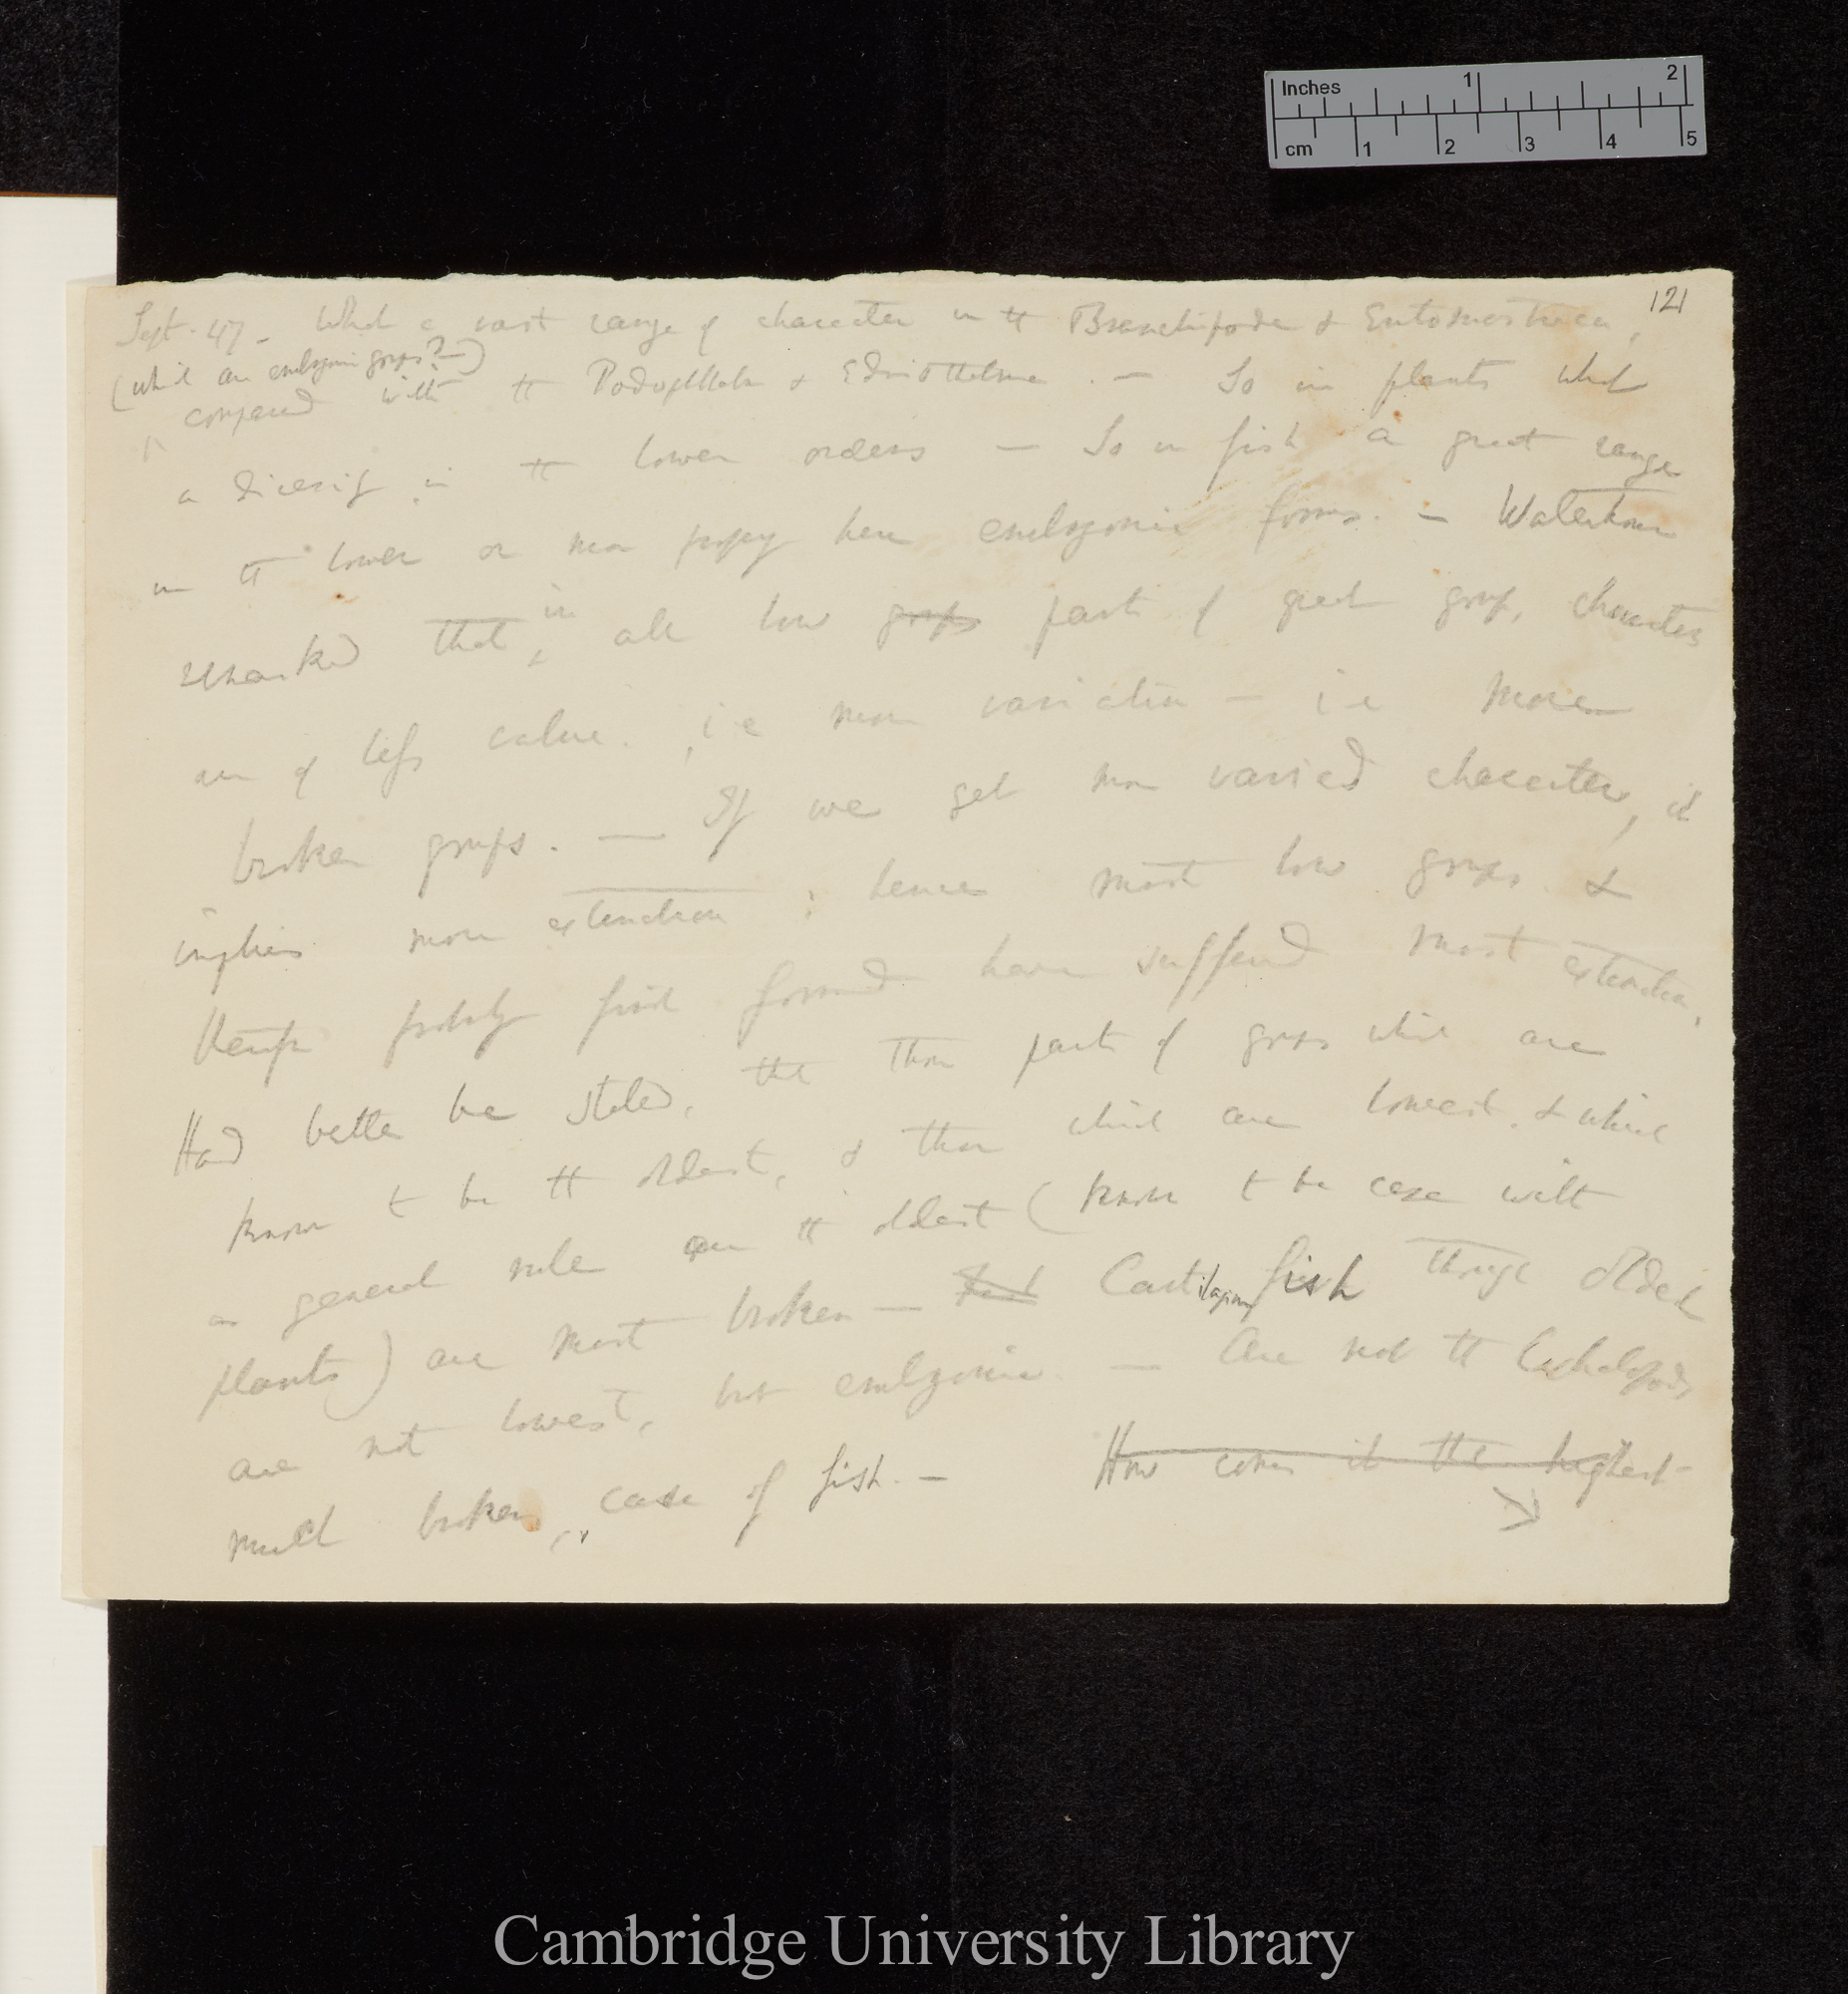 Inches 1 2
cm 1 2 3 4 5
121
Sept. 47 - What a vast range of character in the Branchipoda & Entomostraca,
(which are embryonic groups? —)
compared with the Podophthalma & Edriophthalma. — So in plants what
a diversity in the lower orders — So in fish a great range
in the lower or more properly here embryonic forms. — Waterhouse
remarked that, in all low groups part of great group, characters
are of less value. , i.e more variation — i.e more
broken groups. — If we get more varied character, it
implies more extinction ; hence most low groups &
therefore probably first formed have suffered most extinction.
Had better be stated, that those parts of groups which are
known to be the oldest, & those which are lowest, & which
as general rule are the oldest (known to be case with
plants) are most broken — Cartilaginous fish though oldest
are not lowest, but embryonic. — Are not the Cephalopods
much broken, case of fish. — How comes it that highest
Cambridge University Library